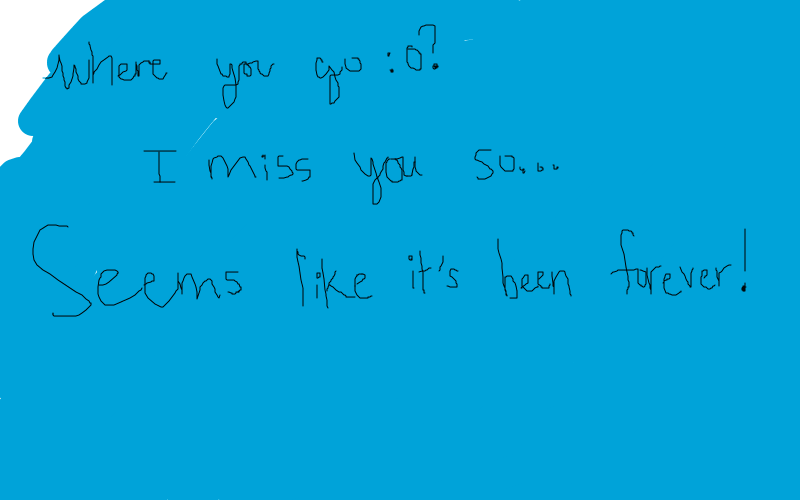 Where you go :o?
I miss you so...
Seems like it's been forever!